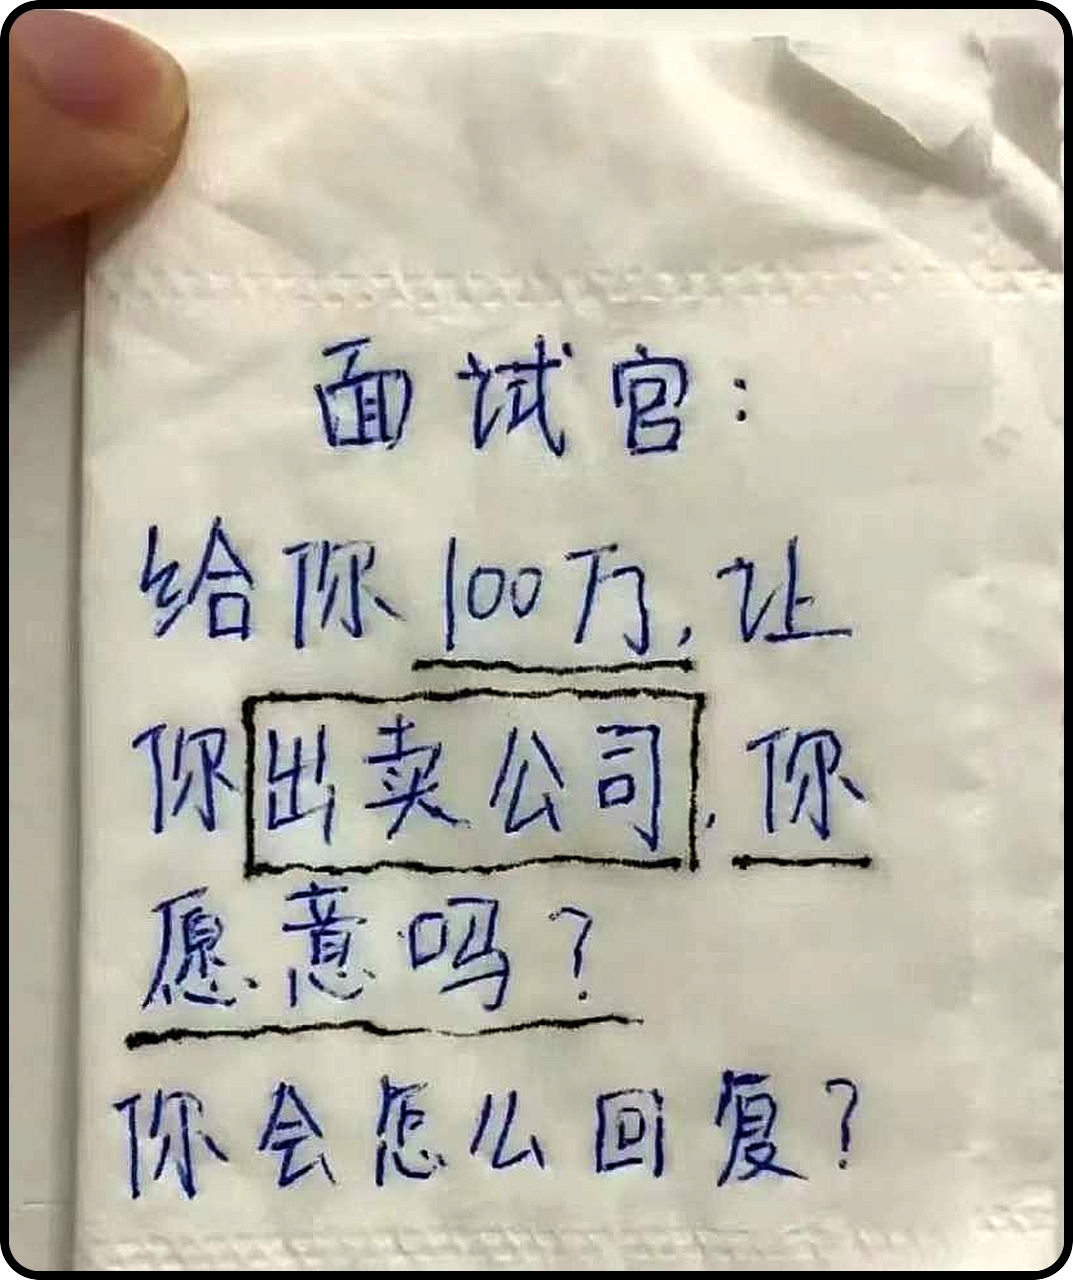 面试官:
给你100万,让
你出卖公司,你
愿意吗?
你会怎么回复?